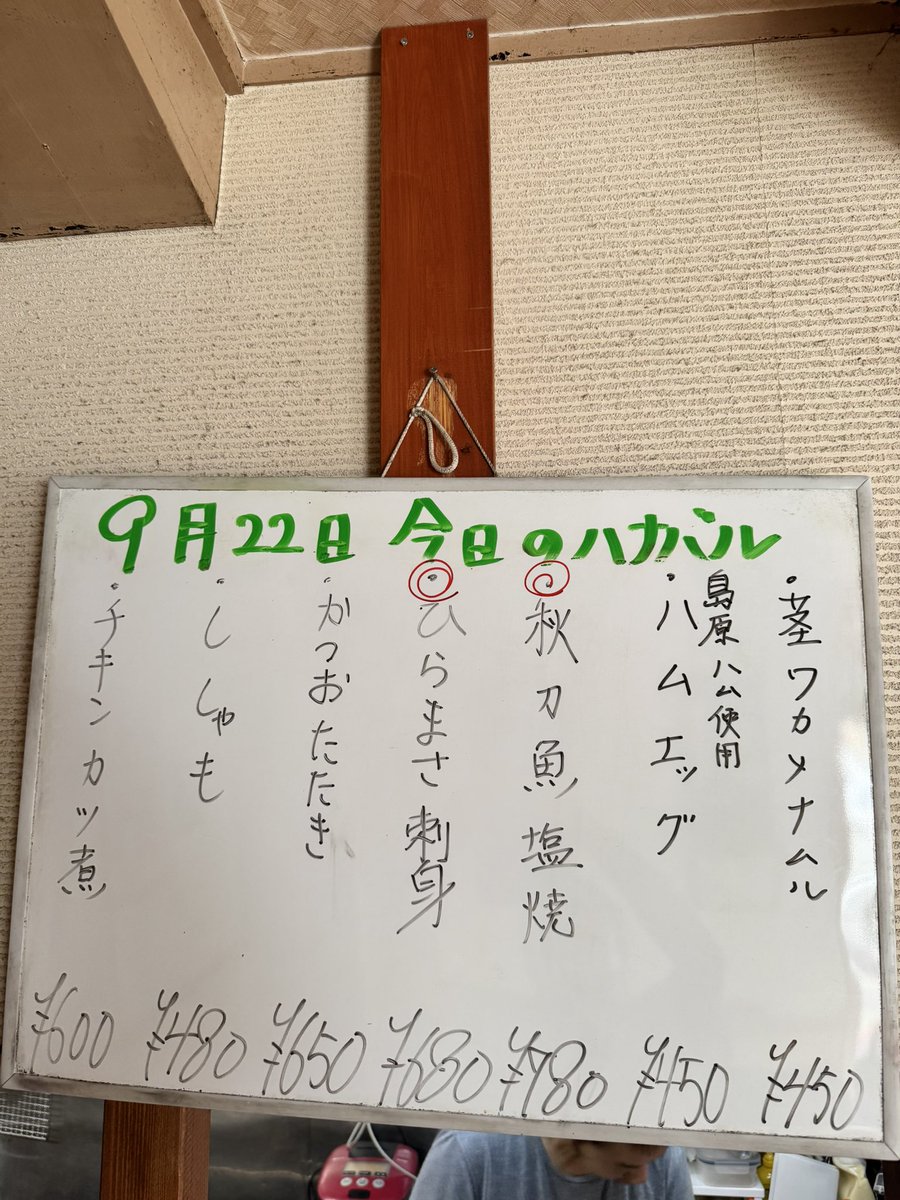 9月22日 今日のハカバル
・茎ワカメナムル ¥450
島原ハム使用
・ハムエッグ ¥450
・秋刀魚塩焼 ¥780
・ひらまさ刺身 ¥680
・かつおたたき ¥650
・ししゃも ¥480
・チキンカツ煮 ¥600